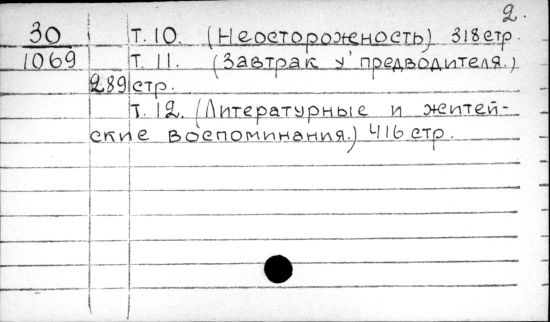 2.
30 Т. 10. (Неосторожность) 318 стр.
1069 Т. 11. (Завтрак у предводителя.)
289 стр.
Т. 12. (Литературные и житей-
ские воспоминания.) 416 стр.